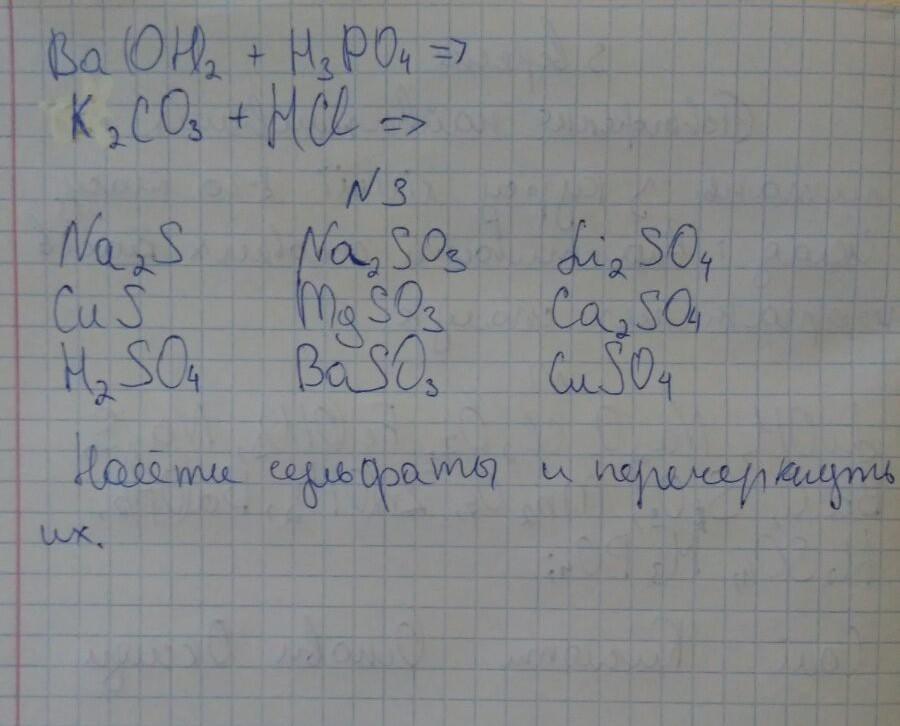 Ba(OH)₂ + H₃PO₄ =>
K₂CO₃ + HCl =>
N 3
Na₂S Na₂SO₃ Li₂SO₄
CuS MgSO₃ Ca₂SO₄
H₂SO₄ BaSO₃ CuSO₄
Найти сульфаты и перечеркнуть
их.